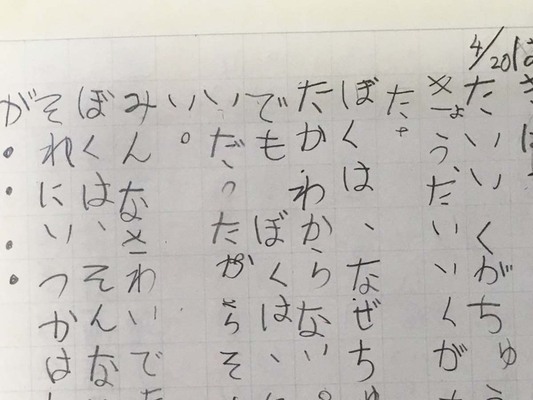 4/20
たいいくがちゅう
きょうだいいくが
た。
ぼくは、なぜちゅ
たかわからない。
でもぼくは、
いだったからそ
い。
みんなさわいで
ぼくは、そんな
それにいつかは
が・・・・